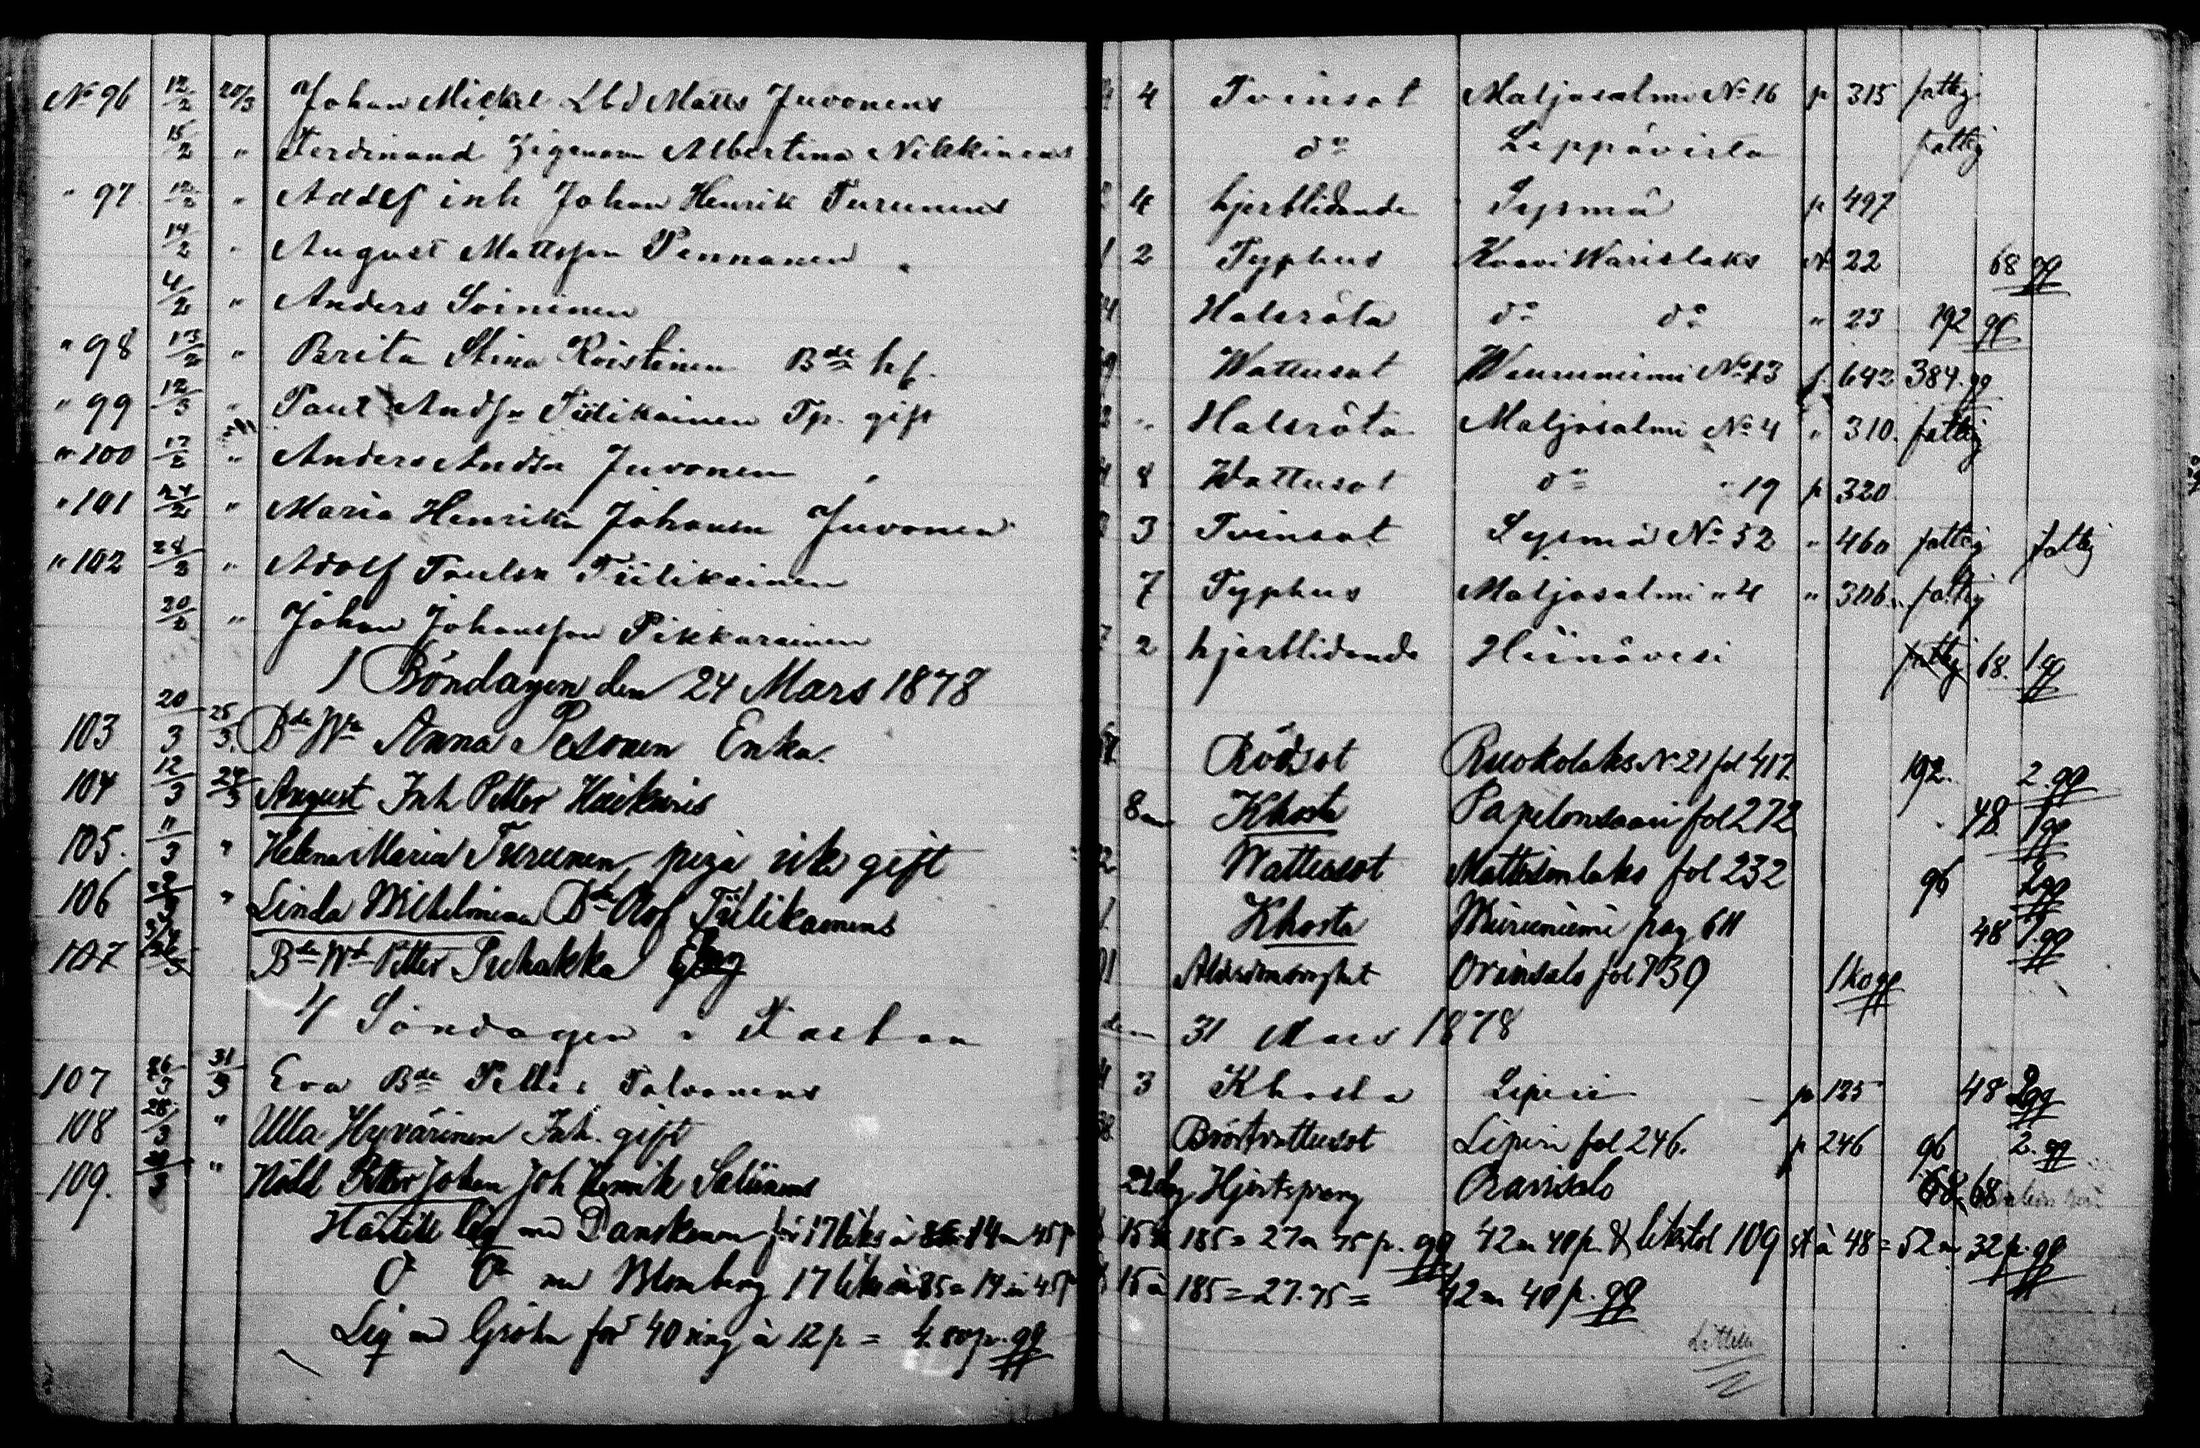 No 96 12/2 20/3 Johan Mickel Lbd Matts Juvonens 4 Tvinsot Maljasalmi No 16 p 315 fattig
15/2 " Ferdinand Albertina Nikkinens do Leppävirta fattig
" 97 12/2 " Adolf inh Johan Henrik Turunens 4 hjertlidande Sysmä p 497
14/2 " August Mattsson Pennanen 2 Typhus Kaavi Warislaks N 22 68 gg
4/2 " Anders Soininen Halsröta do do " 23 192 gg
" 98 13/2 " Brita Stina Koistinen Bde hf. Wattusot No 13 f. 642 384. gg
" 99 12/3 " Paul Andsn Tiilikainen Tp. gift " Halsröta Maljasalmi No 4 " 310. fattig
" 100 17/2 " Anders Andsn Juvonen 8 Wattusot do " 19 p 320
" 101 24/2 " Maria Henrika Johansn Juvonen 3 Tvinsot Sysmä No 32 " 460 fattig fattig
" 102 28/2 " Adolf Paulsn Tiilikainen 7 Typhus Maljasalmi " 4 " 306. fattig
20/2 " Johan Johansson Pikkarainen 2 hjertlidande Heinävesi fattig 68. 1 gg
1 Böndagen den 24 Mars 1878
103 20/3 25/3 Bde Wa Anna Pesonen Enka. Rödsot Ruokolaks N 21 fol 417. 192. 2. gg
104 12/3 24/3 August Inh Petter Haikaris 8 m Khosta Papelonsaari fol 272 48 1 gg
105. 11/3 " Helena Maria Turunen, piga icke gift Wattusot Mattisenlaks fol 232 96 2 gg
106 " Linda Wilhelmina Bde Olof Tiilikainens Khosta pag 611 48 1. gg
107 Bde Wd Petter Puhakka Orinsalo fol 739 1 ko gg
4 Söndagen i Fastan den 31 Mars 1878
107 26/3 31/3 Eva Bde Petter Tolvanens 3 Khosta Liperi p 125 48 2 gg
108 28/3 " Ulla Hyvärinen Inh. gift Bröstvattusot Liperi fol 246. p 246 96 2. gg
109. " Petter Johan Joh Henrik 68 68
med Danskanen för 17 liks à 14 m 45 p 15 à 185 = 27 m 75 p. gg 42 m 40 p. 109 st à 48 = 52 m 32 p. gg
do do med Blomberg 17 liks à 85 = 14 m 45 p 15 à 185 = 27.75 = 42 m 40 p. gg
Liq med Gröhn för 40 ring à 12 p = 4. 80 p. gg